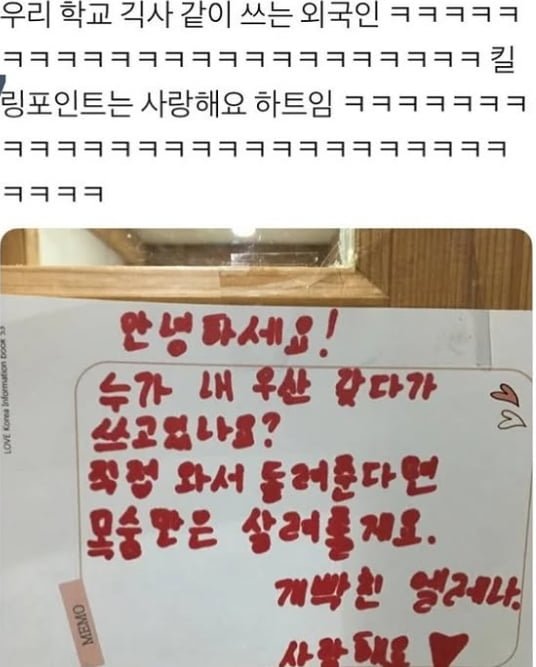 우리 학교 긱사 같이 쓰는 외국인 ㅋㅋㅋㅋㅋ
ㅋㅋㅋㅋㅋㅋㅋㅋㅋㅋㅋㅋㅋㅋㅋㅋㅋㅋ 킬
링포인트는 사랑해요 하트임 ㅋㅋㅋㅋㅋㅋㅋ
ㅋㅋㅋㅋㅋㅋㅋㅋㅋㅋㅋㅋㅋㅋㅋㅋㅋㅋㅋ
ㅋㅋㅋㅋ
안녕하세요!
누가 내 우산 갖다가
쓰고있나요?
직접 와서 돌려준다면
목숨만은 살려줄게요.
개빡친 엘레나.
사랑해요
LOVE Korea Information Book 53
MEMO